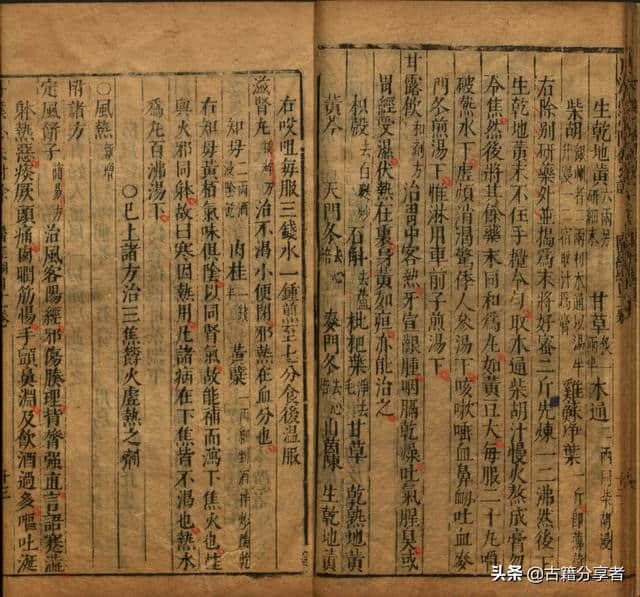 生乾地黃六兩另研細末 甘草 木通二兩同柴胡浸
柴胡銀州者二兩 雞蘇淨葉一斤即薄荷
右除別研藥外並搗爲末將好蜜二斤先煉一二沸然後下
生乾地黃末不住手攪令勻取水通柴胡汁慢火熬成膏勿
令焦然後將其餘藥末同和爲丸如黃豆大每服二十九嚼
破熱水下虛煩消渴驚悸人參湯下咳嗽唾血鼻衂吐血麥
門冬煎湯下惟淋用車前子煎湯下
甘露飲和劑方治胃中客熱牙宣齦腫咽膈乾燥吐氣腥臭或
胃經受濕伏熱在裏身黃如疸亦能治之
枳殼去白麩炒 石斛去蘆 枇杷葉淨去毛 甘草 乾熟地黃
黃芩 天門冬去心焙 麥門冬去心焙 山茵陳 生乾地黃
右㕮咀每服三錢水一鍾煎至七分食後溫服
滋腎丸 治不渴小便閉邪熱在血分也
知母二兩酒浸陰乾 肉桂二錢 黃蘗
右知母黃栢氣味俱陰以同腎氣故能補而瀉下焦火也桂
與火邪同躰故曰寒因熱用凡諸病在下焦皆不渴也熱水
爲丸百沸湯下
○已上諸方治三焦結火虛熱之劑
○風熱新增
附諸方
定風餅子簡易方治風客陽經邪傷腠理背膂强直言語蹇澁
躰熱惡痰厥頭痛肉瞤筋惕手顫鼻淵及飲酒過多嘔吐涎
十三
头条 @古籍分享者